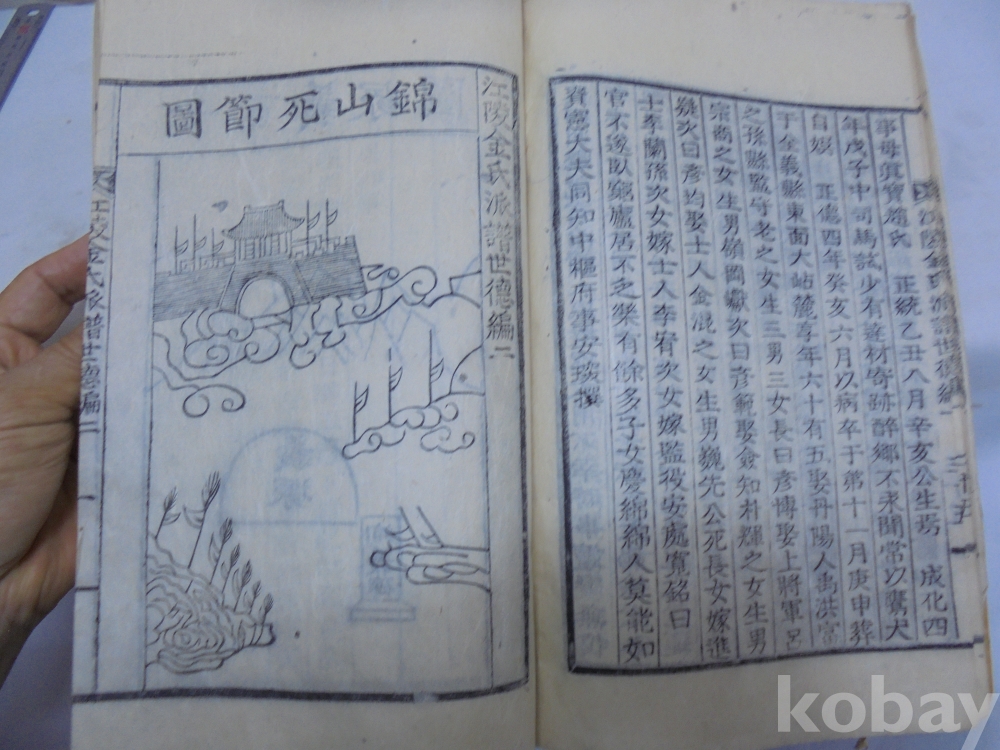 事母眞寶趙氏 正統乙丑八月辛亥公生焉 成化四
年戊子中司馬試少有材寄跡醉鄉不求聞常以鷹犬
自娛 正德四年癸亥六月以病卒于第十一月庚申葬
于全義縣東面大站麓享年六十有五娶丹陽人禹洪富
之孫縣監守老之女生三男三女長曰彦博娶上將軍呂
宗肅之女生男嶺岡嶽次曰彦範娶僉知朴輝之女生男
嶷次曰彦均娶士人金混之女生男巍先公死長女嫁進
士李蘭孫次女嫁士人李宥次女嫁監役安處寬銘曰
官不遂臥窮廬居不乏樂有餘多子女慶綿綿人莫能如
資憲大夫同知中樞府事安琰撰
江陵金氏派譜世德編二
錦山死節圖
江陵金氏派譜世德編二 一
kobay